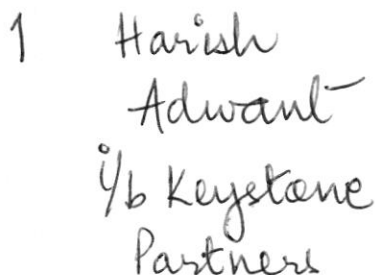 1 Harish
Adwant
i/b Keystone
Partners